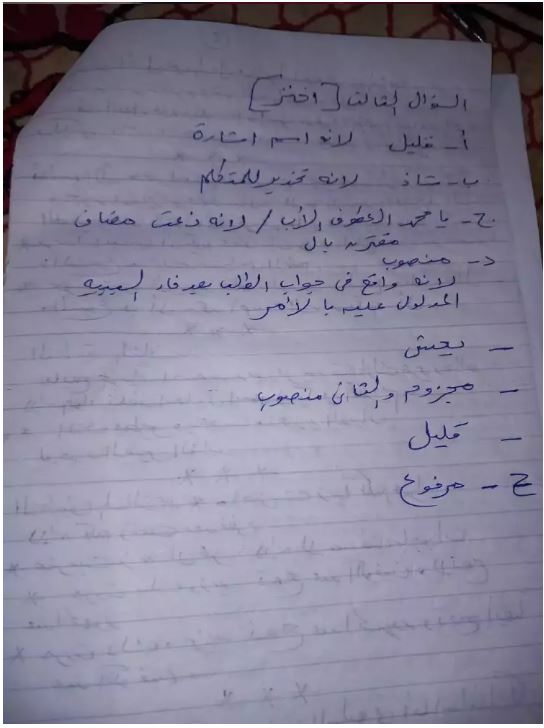 السؤال الثالث [اختر]
أ - قليل لانه اسم اشارة
ب - شاذ لانه تحذير للمتكلم
ج - يا محمد العطوف الأب / لانه نعت مضاف
مقترن بال
د - منصوب
لانه واقع فى جواب الطلب بعد فاء السببيه
المدلول عليه بالأمر
-
- مجزوم والثانى منصوب
- قليل
ح - مرفوع